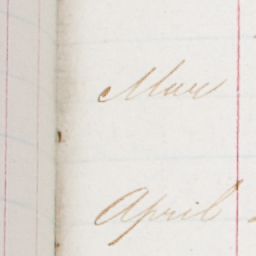 Mar
April